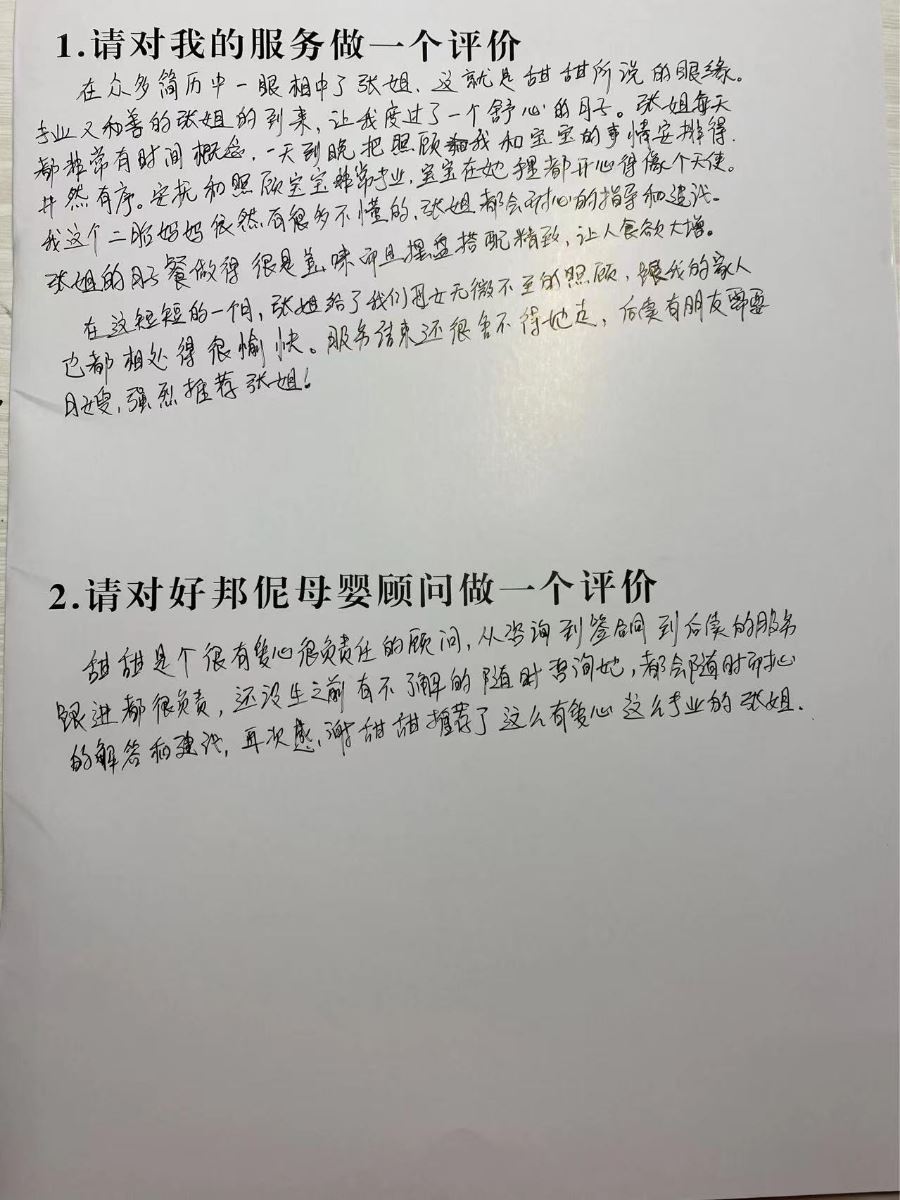 1.请对我的服务做一个评价
在众多简历中一眼相中了张姐,这就是甜甜所说的眼缘。
专业又和善的张姐的到来,让我度过了一个舒心的月子。张姐每天
都非常有时间概念,一天到晚把照顾我和宝宝的事情安排得
井然有序。安抚和照顾宝宝非常专业,宝宝在她手里都开心得像个天使。
我这个二胎妈妈很然有很多不懂的,张姐都会耐心的指导和建议。
张姐的月子餐做得很是美味而且摆盘搭配精致,让人食欲大增。
在这短短的一个月,张姐给了我们母女无微不至的照顾,跟我的家人
也都相处得很愉快。服务结束还很舍不得她走,后续有朋友需要
月嫂,强烈推荐张姐!
2.请对好邦伲母婴顾问做一个评价
甜甜是个很有爱心很负责任的顾问,从咨询到签合同到后续的服务
跟进都很负责,还没生之前有不了解的随时咨询她,都会随时耐心
的解答和建议,再次感谢甜甜推荐了这么有爱心这么专业的张姐.